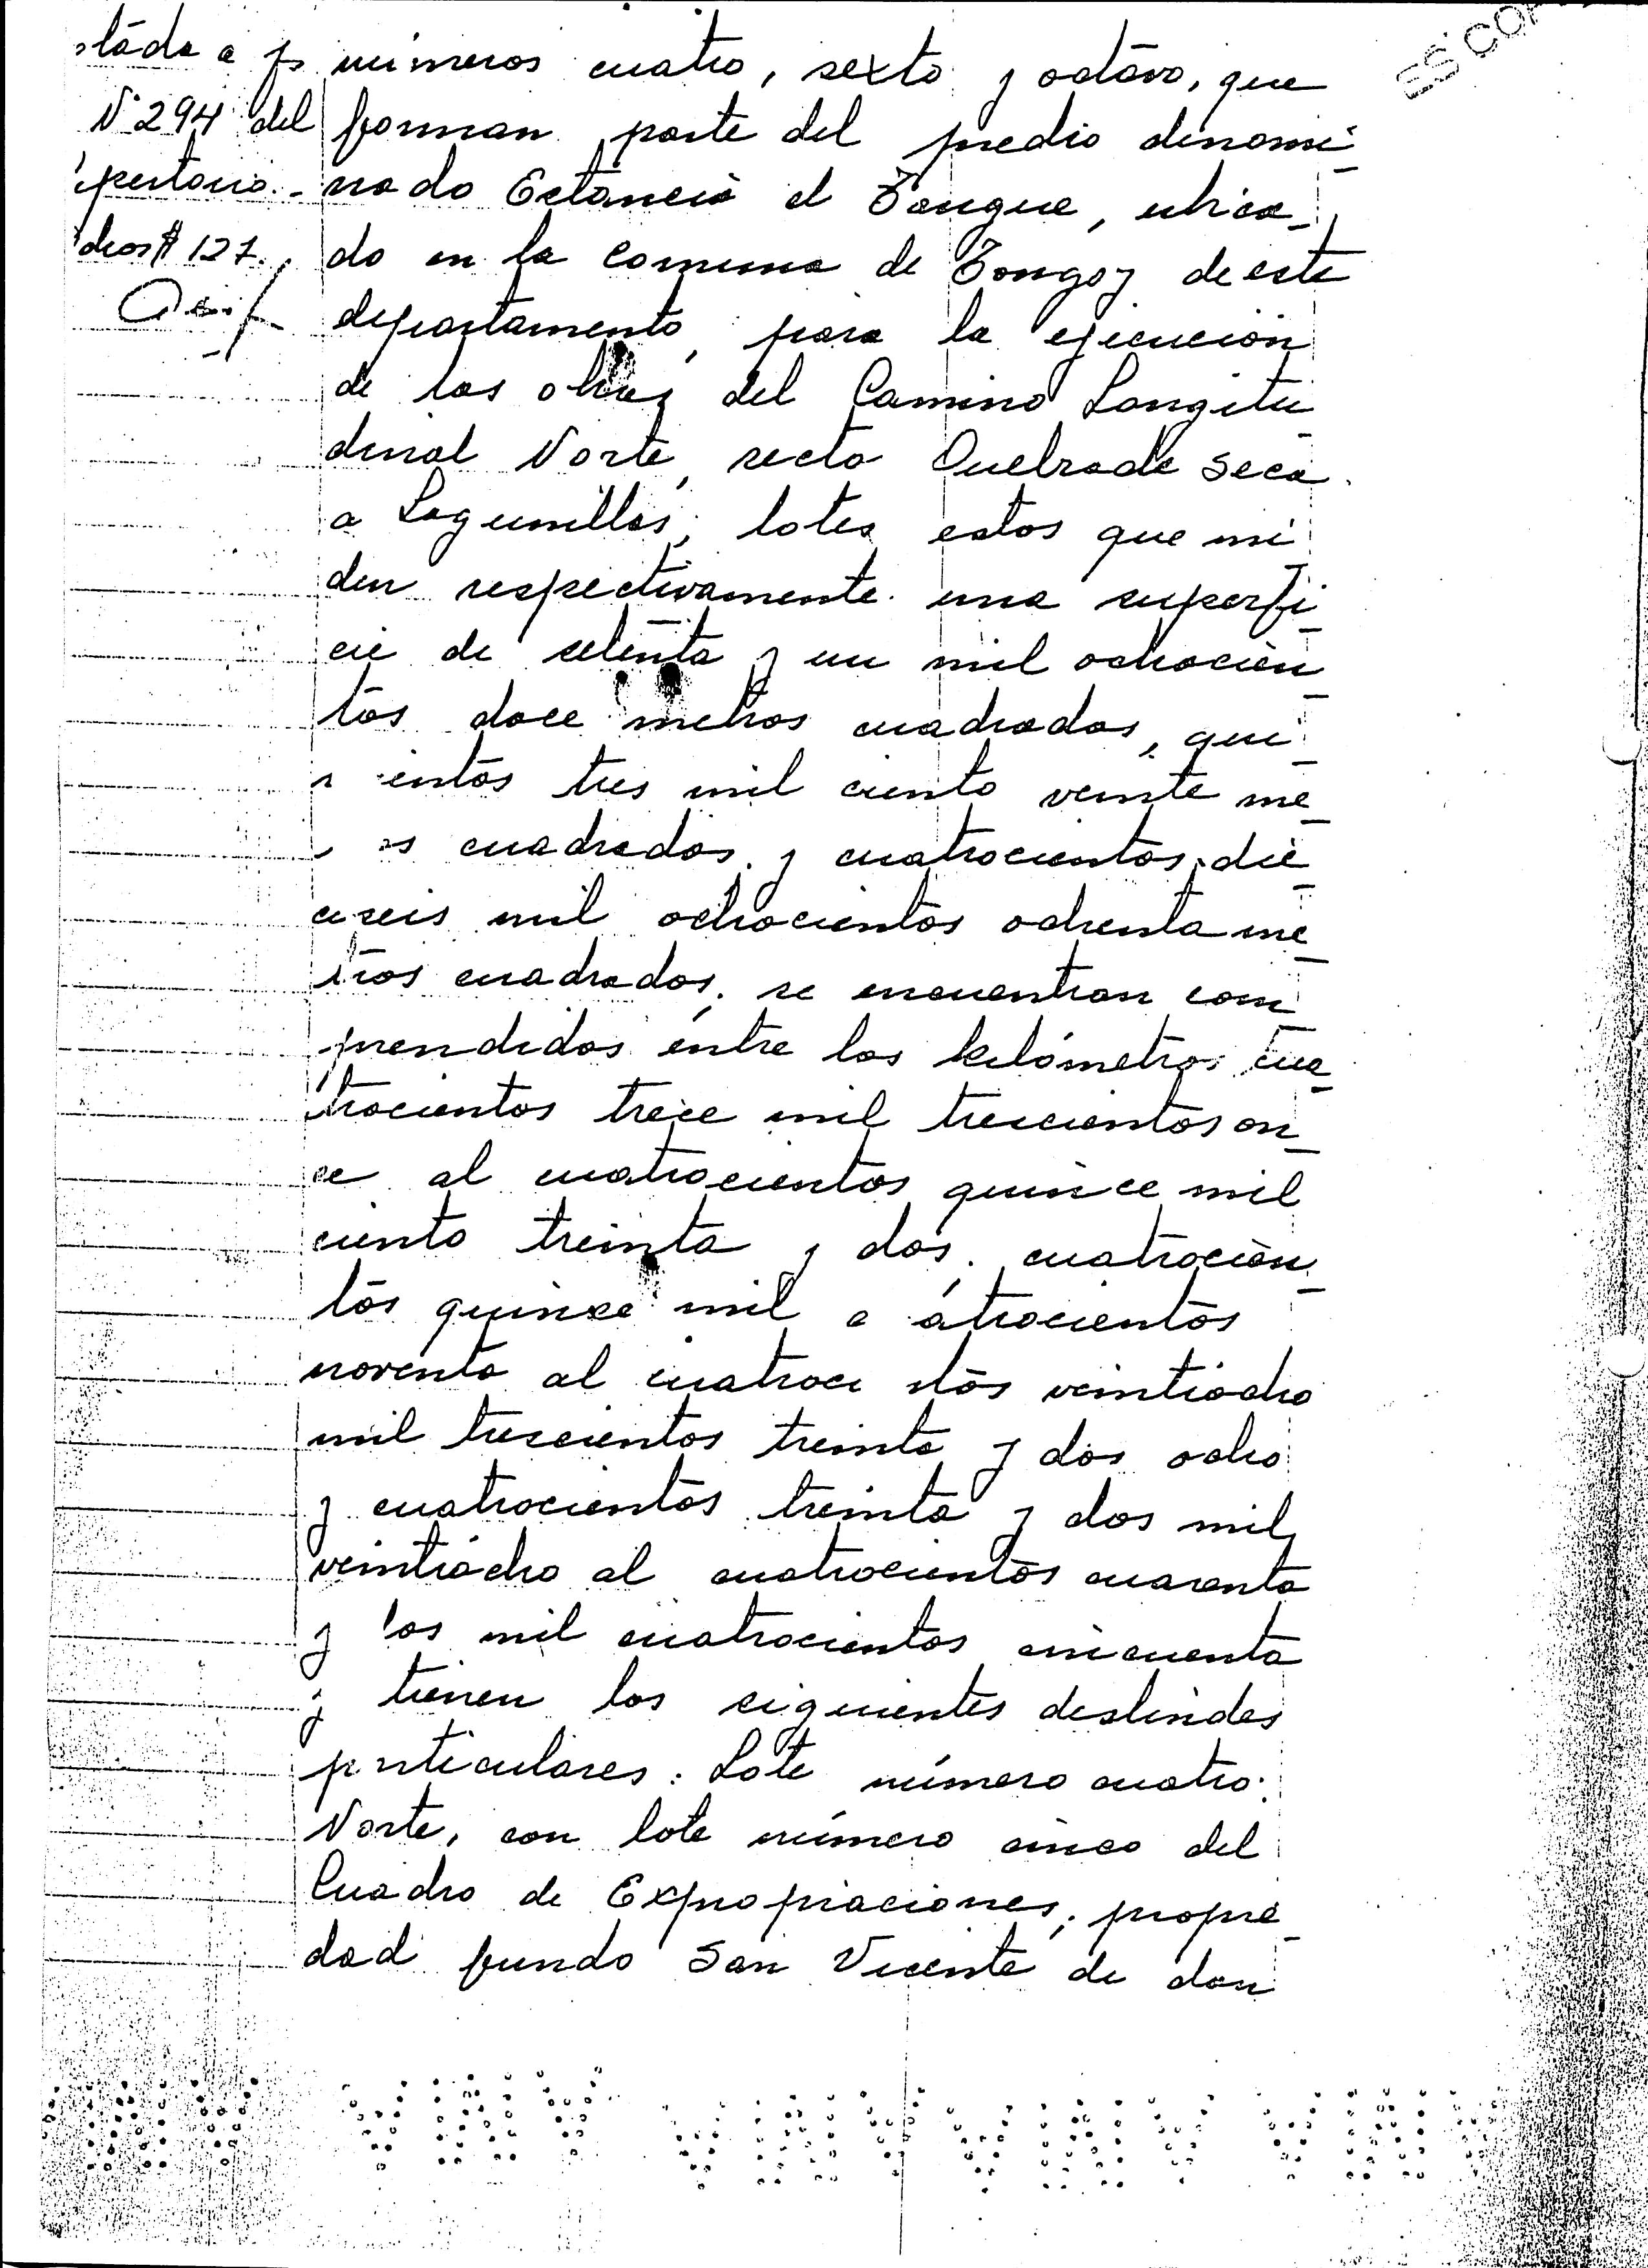 ES COP
N° 294 del
dros $ 127.
números cuatro, sexto y octavo, que
forman parte del predio denomi-
nado Estancia el Tangue, ubica-
do en la Comuna de Tongoy de este
departamento, para la ejecución
de las obras del Camino Longitu-
dinal Norte, recta Quebrada Seca
a Lagunillas, lotes estos que mi-
den respectivamente una superfi-
cie de setenta y un mil ochocien-
tos doce metros cuadrados, qui-
entos tres mil ciento veinte me-
os cuadrados y cuatrocientos die-
ciseis mil ochocientos ochenta me-
tros cuadrados, se encuentran com-
prendidos entre los kilómetros cua-
trocientos trece mil trescientos on-
ce al cuatrocientos quince mil
ciento treinta y dos, cuatrocien-
tos quince mil c atrocientos
noventa al cuatroci ntos veintiocho
mil trescientos treinta y dos ocho
y cuatrocientos treinta y dos mil
veintiocho al cuatrocientos cuarenta
y dos mil cuatrocientos cincuenta
y tienen los siguientes deslindes
p rticulares: Lote número cuatro:
Norte, con lote número cinco del
Cuadro de Expropiaciones, propie-
dad fundo San Vicente de don